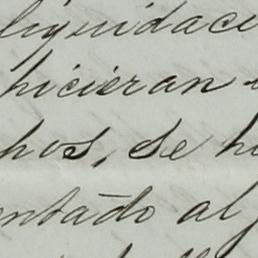 liquidaci
hicieran
hos, se h
entado al